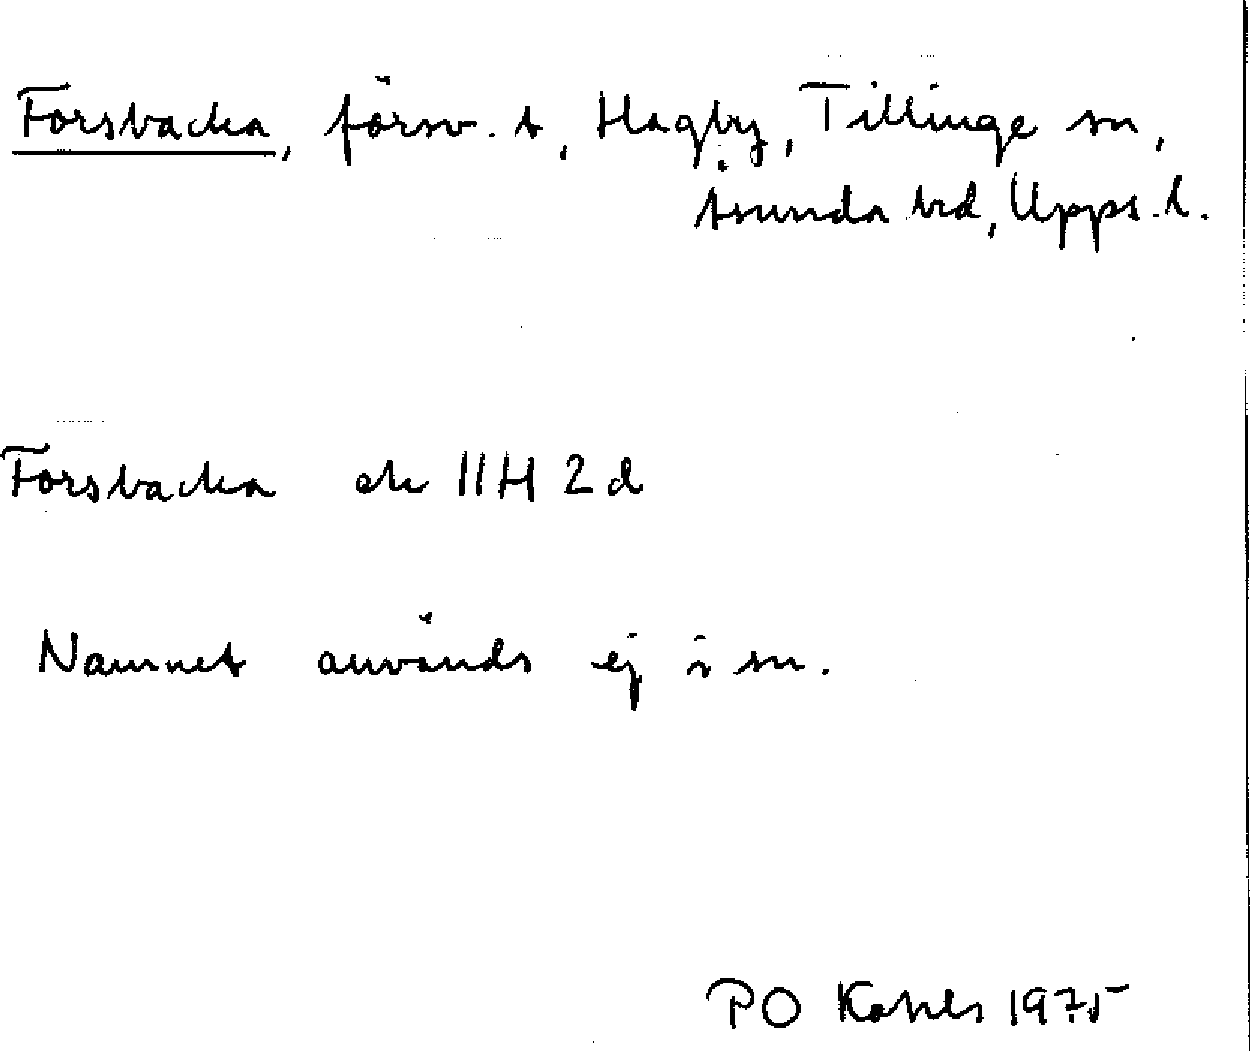 Forsbacka, försv. t, Hagby, Tillinge sn,
Åsunda hd, Upps. l.
Forsbacka ek 11H 2d
Namnet används ej i sn.
PO 1975